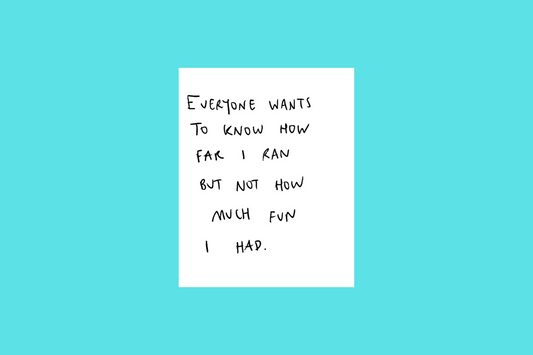 EVERYONE WANTS
TO KNOW HOW
FAR I RAN
BUT NOT HOW
MUCH FUN
I HAD.